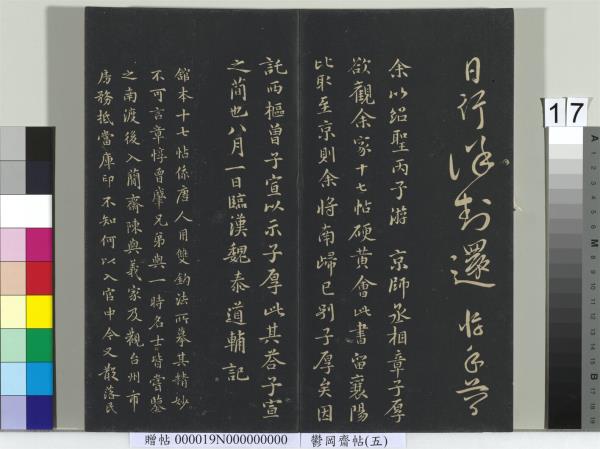 日行封還惇
余以紹聖丙子游 京師丞相章子厚
欲觀余家十七帖硬黃會此書留襄陽
比取至京則余將南歸已別子厚矣因
託西樞曾子宣以示子厚此其荅子宣
之簡也八月一日臨漢魏泰道輔記
舘本十七帖係唐人用雙鈎法所摹其精妙
不可言章惇曾肇兄弟與一時名士皆嘗鑒
之南渡後入簡齋陳與義家及觀台州市
房務抵當庫印不知何以入官中今又散落民
17
贈帖 000019N000000000 鬱岡齋帖(五)